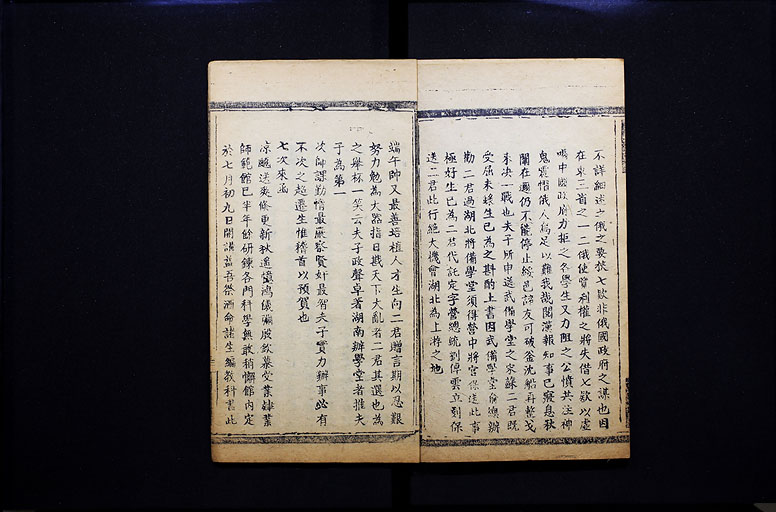 不詳細述之俄之要挾七欵非俄國政府之謀也因
在東三省之一二俄使冒利權之將失借七欵以虛
喝中國政府力拒之各學生又力阻之公憤共注神
鬼震慴俄人烏足以難我哉閱漢報知事已寢息狄
關在邇仍不能停止綏邑諸友可破釜沈船再整戈
來決一戰也夫子所申送武備學堂之宋蘇二君既
受屈未嫁生已為之斟酌上書因武備學堂俞總辦
勸二君過湖北將備學堂須得營中將官保送此事
極好生已為二君代託定字營總統劉倬雲立刻保
送二君此行絕大機會湖北為上游之地
端午帥又最善培植人才生向二君贈言期以忍艱
努力勉為大器指日戡天下大亂者二君其選也為
之舉杯一笑云夫子政聲卓著湖南辦學堂者推夫
子為第一
次帥課勤惰最嚴察賢奸最智夫子實力辦事必有
不次之超遷生惟稽首以預賀也
七次來函
涼颸送爽條更新狄遙憶鴻儀彌殷欽慕受業肄業
師範館已半年餘研鍊各門科學無敢稍懈館內定
於七月初九日開講益吾祭酒命諸生編教科書此